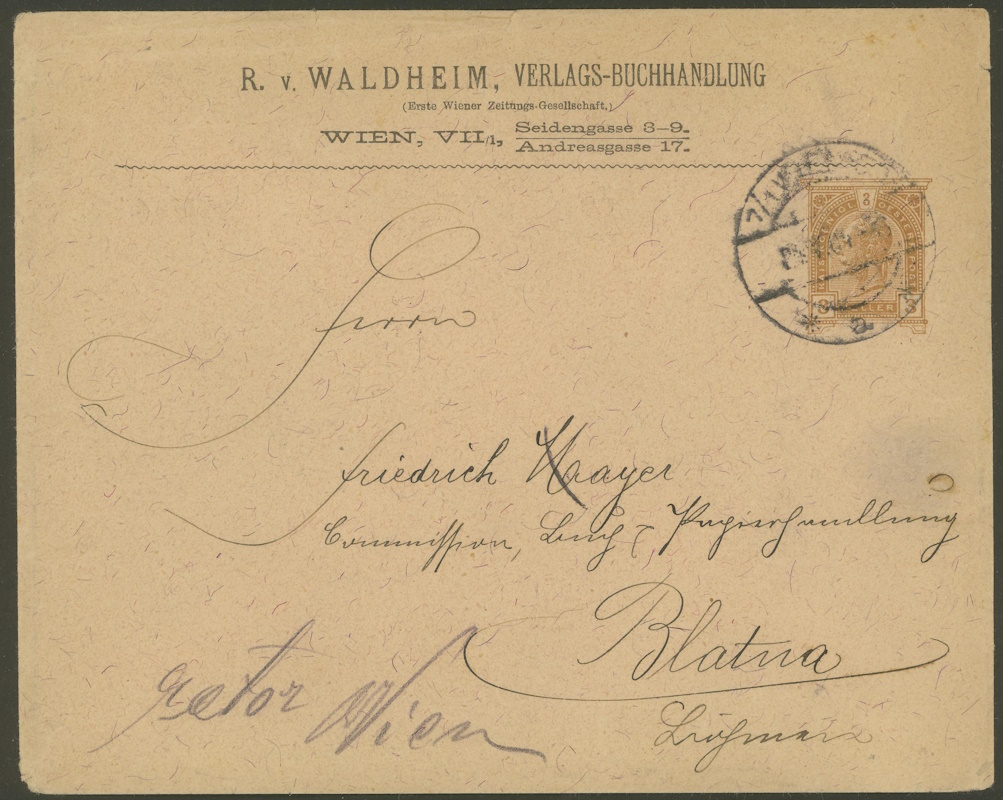 R. v. WALDHEIM, VERLAGS-BUCHHANDLUNG
(Erste Wiener Zeitungs-Gesellschaft.)
WIEN, VII/1, Seidengasse 3-9.
Andreasgasse 17.
7/1 WIEN
3
KAIS. KOENIGL. OESTERR. POST
3 HELLER 3
Herrn
Friedrich Mayer
Commission, Buch & Papierhandlung
Blatna
Böhmen
retor Wien